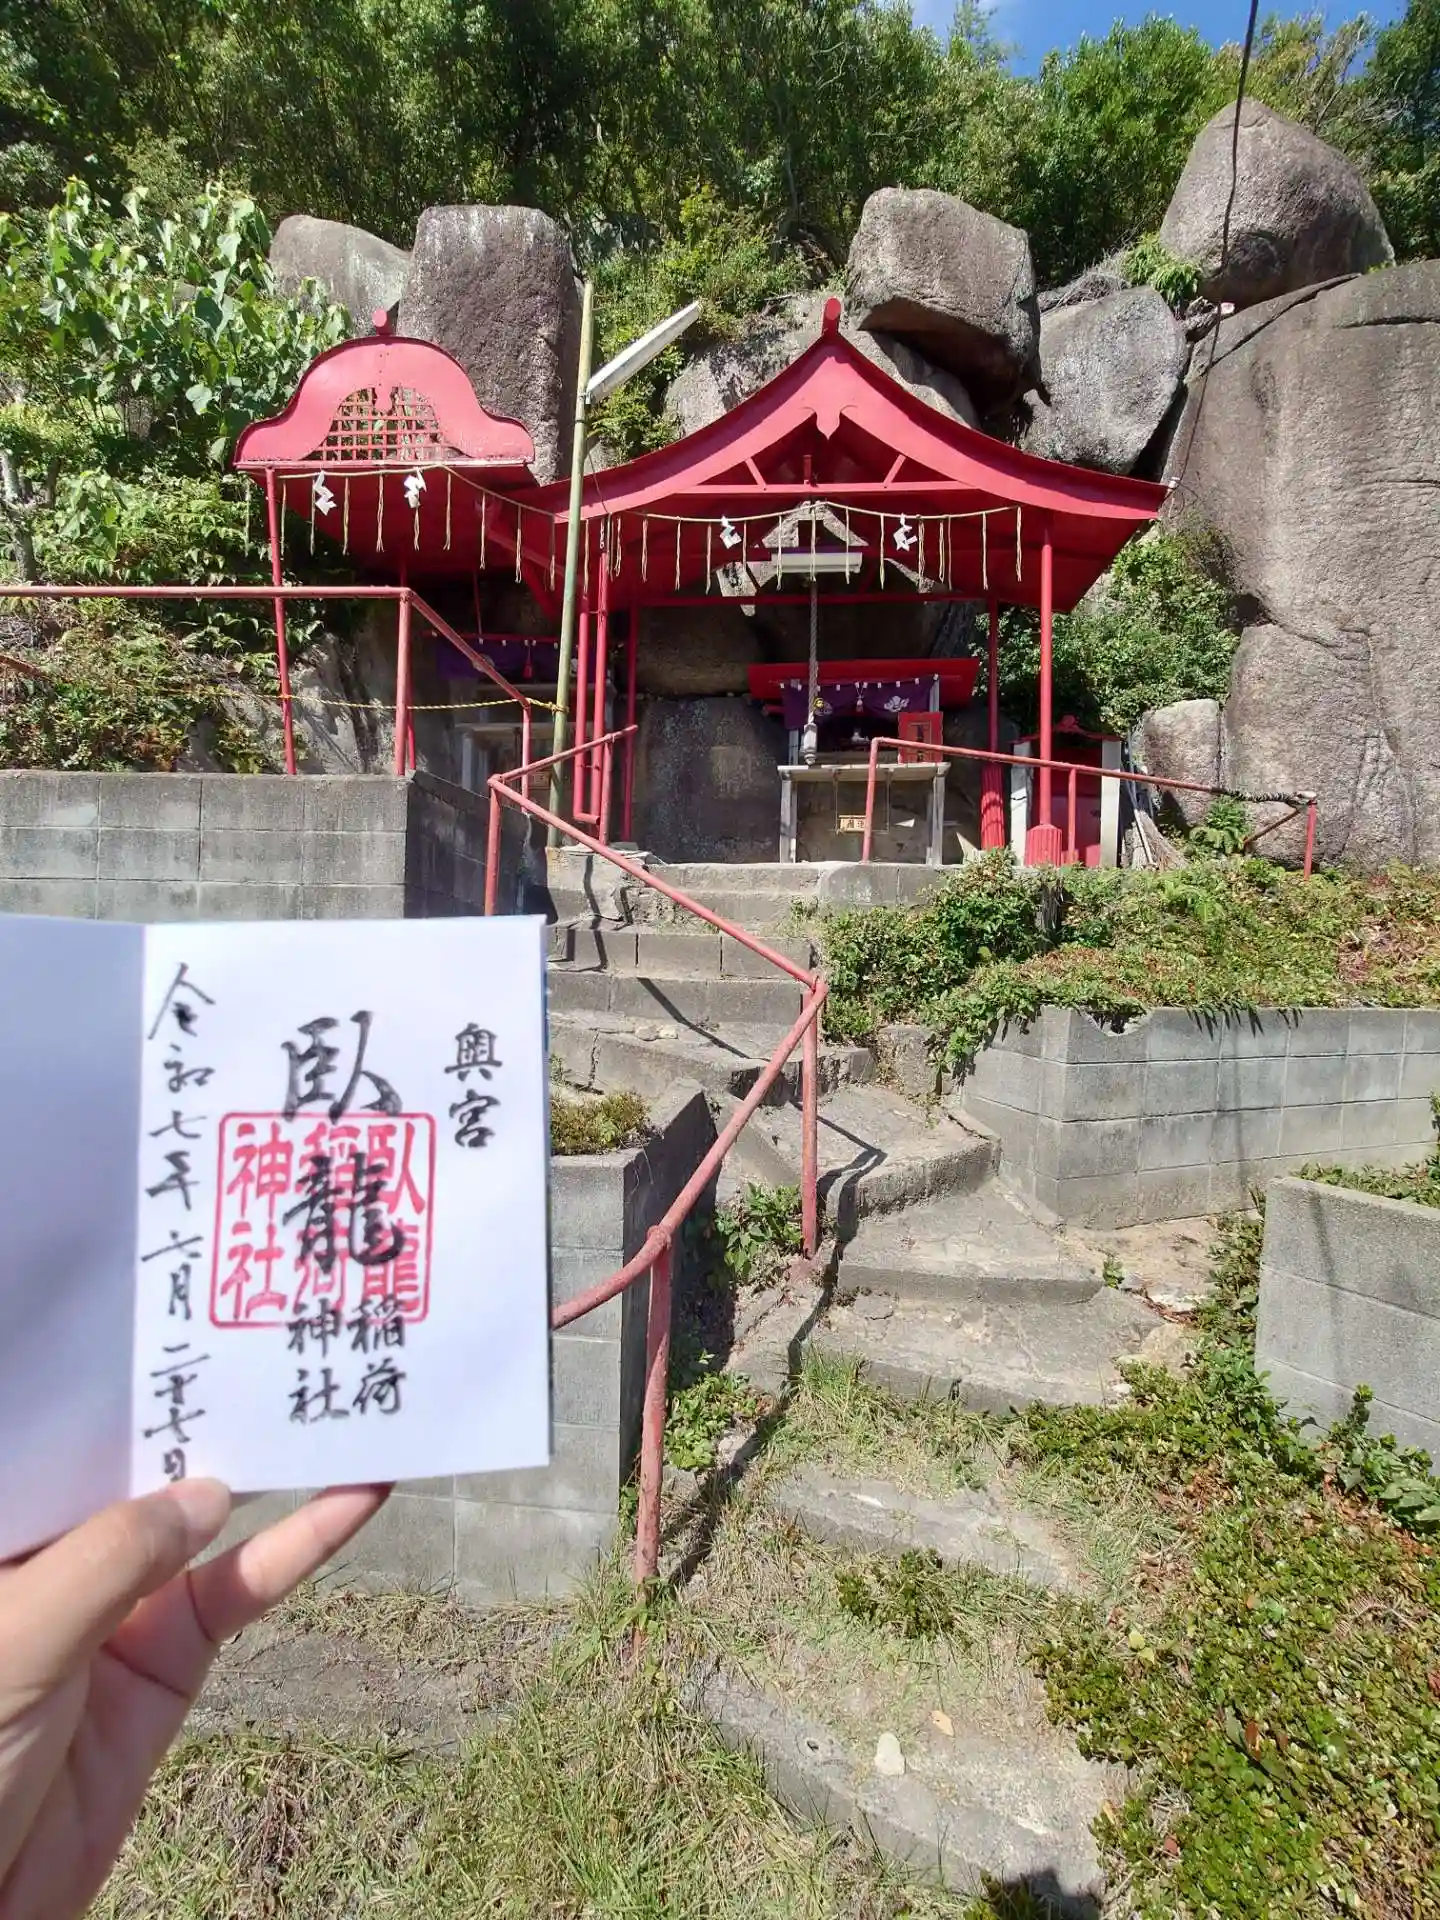 奥宮
臥龍
稲荷
神社
令和七年六月二十七日
臥龍
稲荷
神社